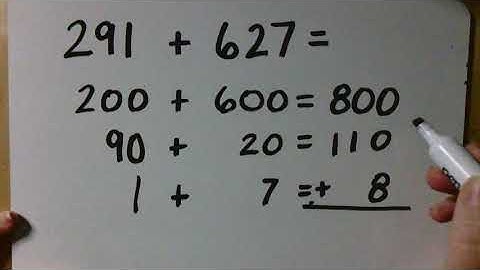 291 + 627 =
200 + 600 = 800
90 + 20 = 110
1 + 7 = + 8